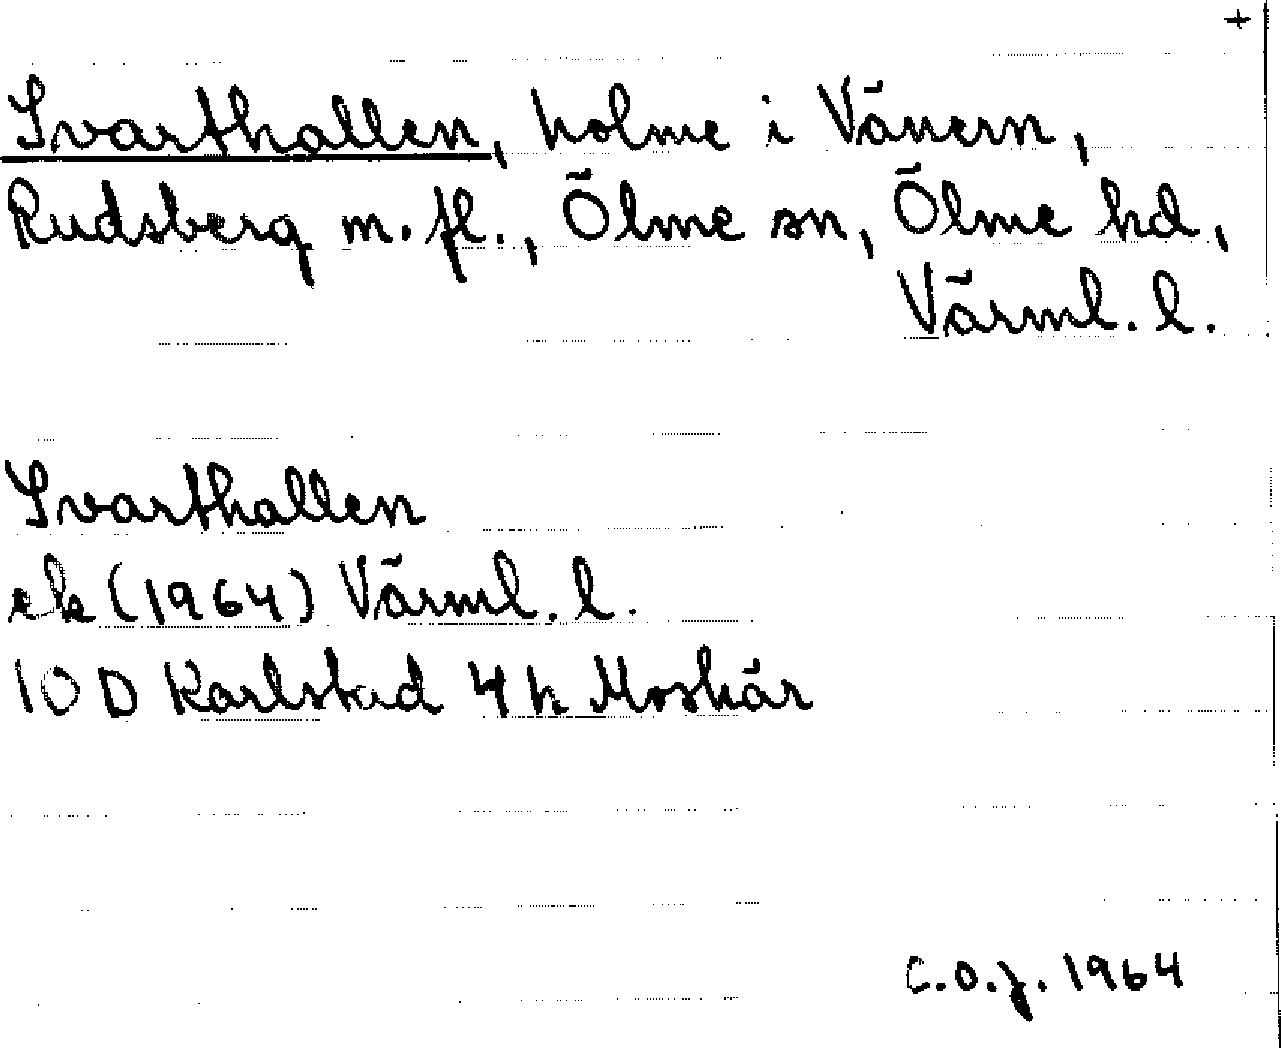 +
Svarthallen, holme i Vänern,
Rudsberg m.fl., Ölme sn, Ölme hd,
Värml. l.
Svarthallen
ek (1964) Värml. l.
10 D Karlstad 4 h Moskär
C.O.J. 1964